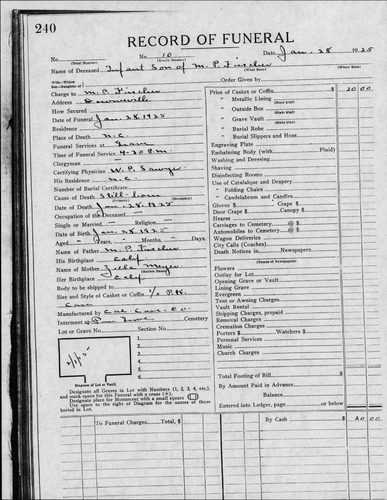 240
RECORD OF FUNERAL
No. 10 Date Jan. 28 1925
(Total Number) (Yearly Number)
Name of Deceased Infant Son of M. P. Fischer
(What Race) (Where Born)
Wife—Widow
Son—Daughter of Order Given by
Charge to M. P. Fischer
Address Downieville
How Secured
Date of Funeral Jan. 28, 1925
Residence
Place of Death N.C.
Funeral Services at
Time of Funeral Service 4-30 P.M.
Clergyman
Certifying Physician W. P. Sawyer
His Residence N.C.
Number of Burial Certificate
Cause of Death Still-born
Date of Death Jan. 28, 1925
Occupation of the Deceased
Single or Married Religion
Date of Birth Jan. 28, 1925
Aged Years, Months, Days
Name of Father M. P. Fischer
His Birthplace Calif
Name of Mother Zella Meyer
(Maiden Name)
Her Birthplace Calif
Body to be shipped to
Size and Style of Casket or Coffin
Manufactured by Cal. Cas. Co.
Interment at Cemetery
Lot or Grave No. Section No.
1.
2.
3.
4.
5.
6.
Diagram of Lot or Vault.
Designate all Graves in Lot with Numbers (1, 2, 3, 4, etc.),
and mark space for this Funeral with a cross (+).
Designate place for Monument with a small square
Use space to right of Diagram for the names of those
buried in Lot.
To Funeral Charges, Total
Price of Casket or Coffin $ 20 00
" Metallic Lining
(State Kind)
" Outside Box
(State Kind)
" Grave Vault
(State Kind)
" Burial Robe
" Burial Slippers and Hose
Engraving Plate
Embalming Body (with Fluid)
Washing and Dressing
Shaving
Disinfecting Rooms
Use of Catafalque and Drapery
" Folding Chairs
" Candelabrum and Candles
Gloves $ Crape $
Door Crape $ Canopy $
Hearse
Carriages to Cemetery @ $
Automobiles to Cemetery @ $
Wagon Deliveries @ $
City Calls (Coaches) @ $
Death Notices in Newspapers
(Names of Newspapers)
Flowers
Outlay for Lot
Opening Grave or Vault
Lining Grave
Evergreen
Tent or Awning Charges
Vault Rental
Shipping Charges, prepaid
Removal Charges
Cremation Charges
Porters $ Watchers $
Personal Services
Music
Church Charges
Total Footing of Bill $
By Amount Paid in Advance
Balance
Entered into Ledger, page or below.
By Cash $ 20 00